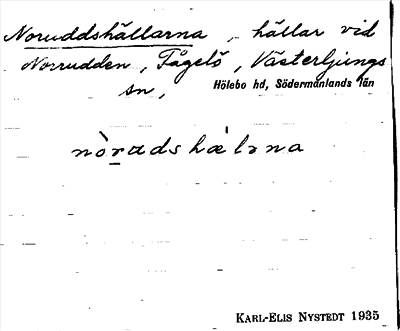 Noruddshällarna, hällar vid
Norrudden, Fågelö, Västerljungs
sn, Hölebo hd, Södermanlands län
nòrudshælana
KARL-ELIS NYSTEDT 1935